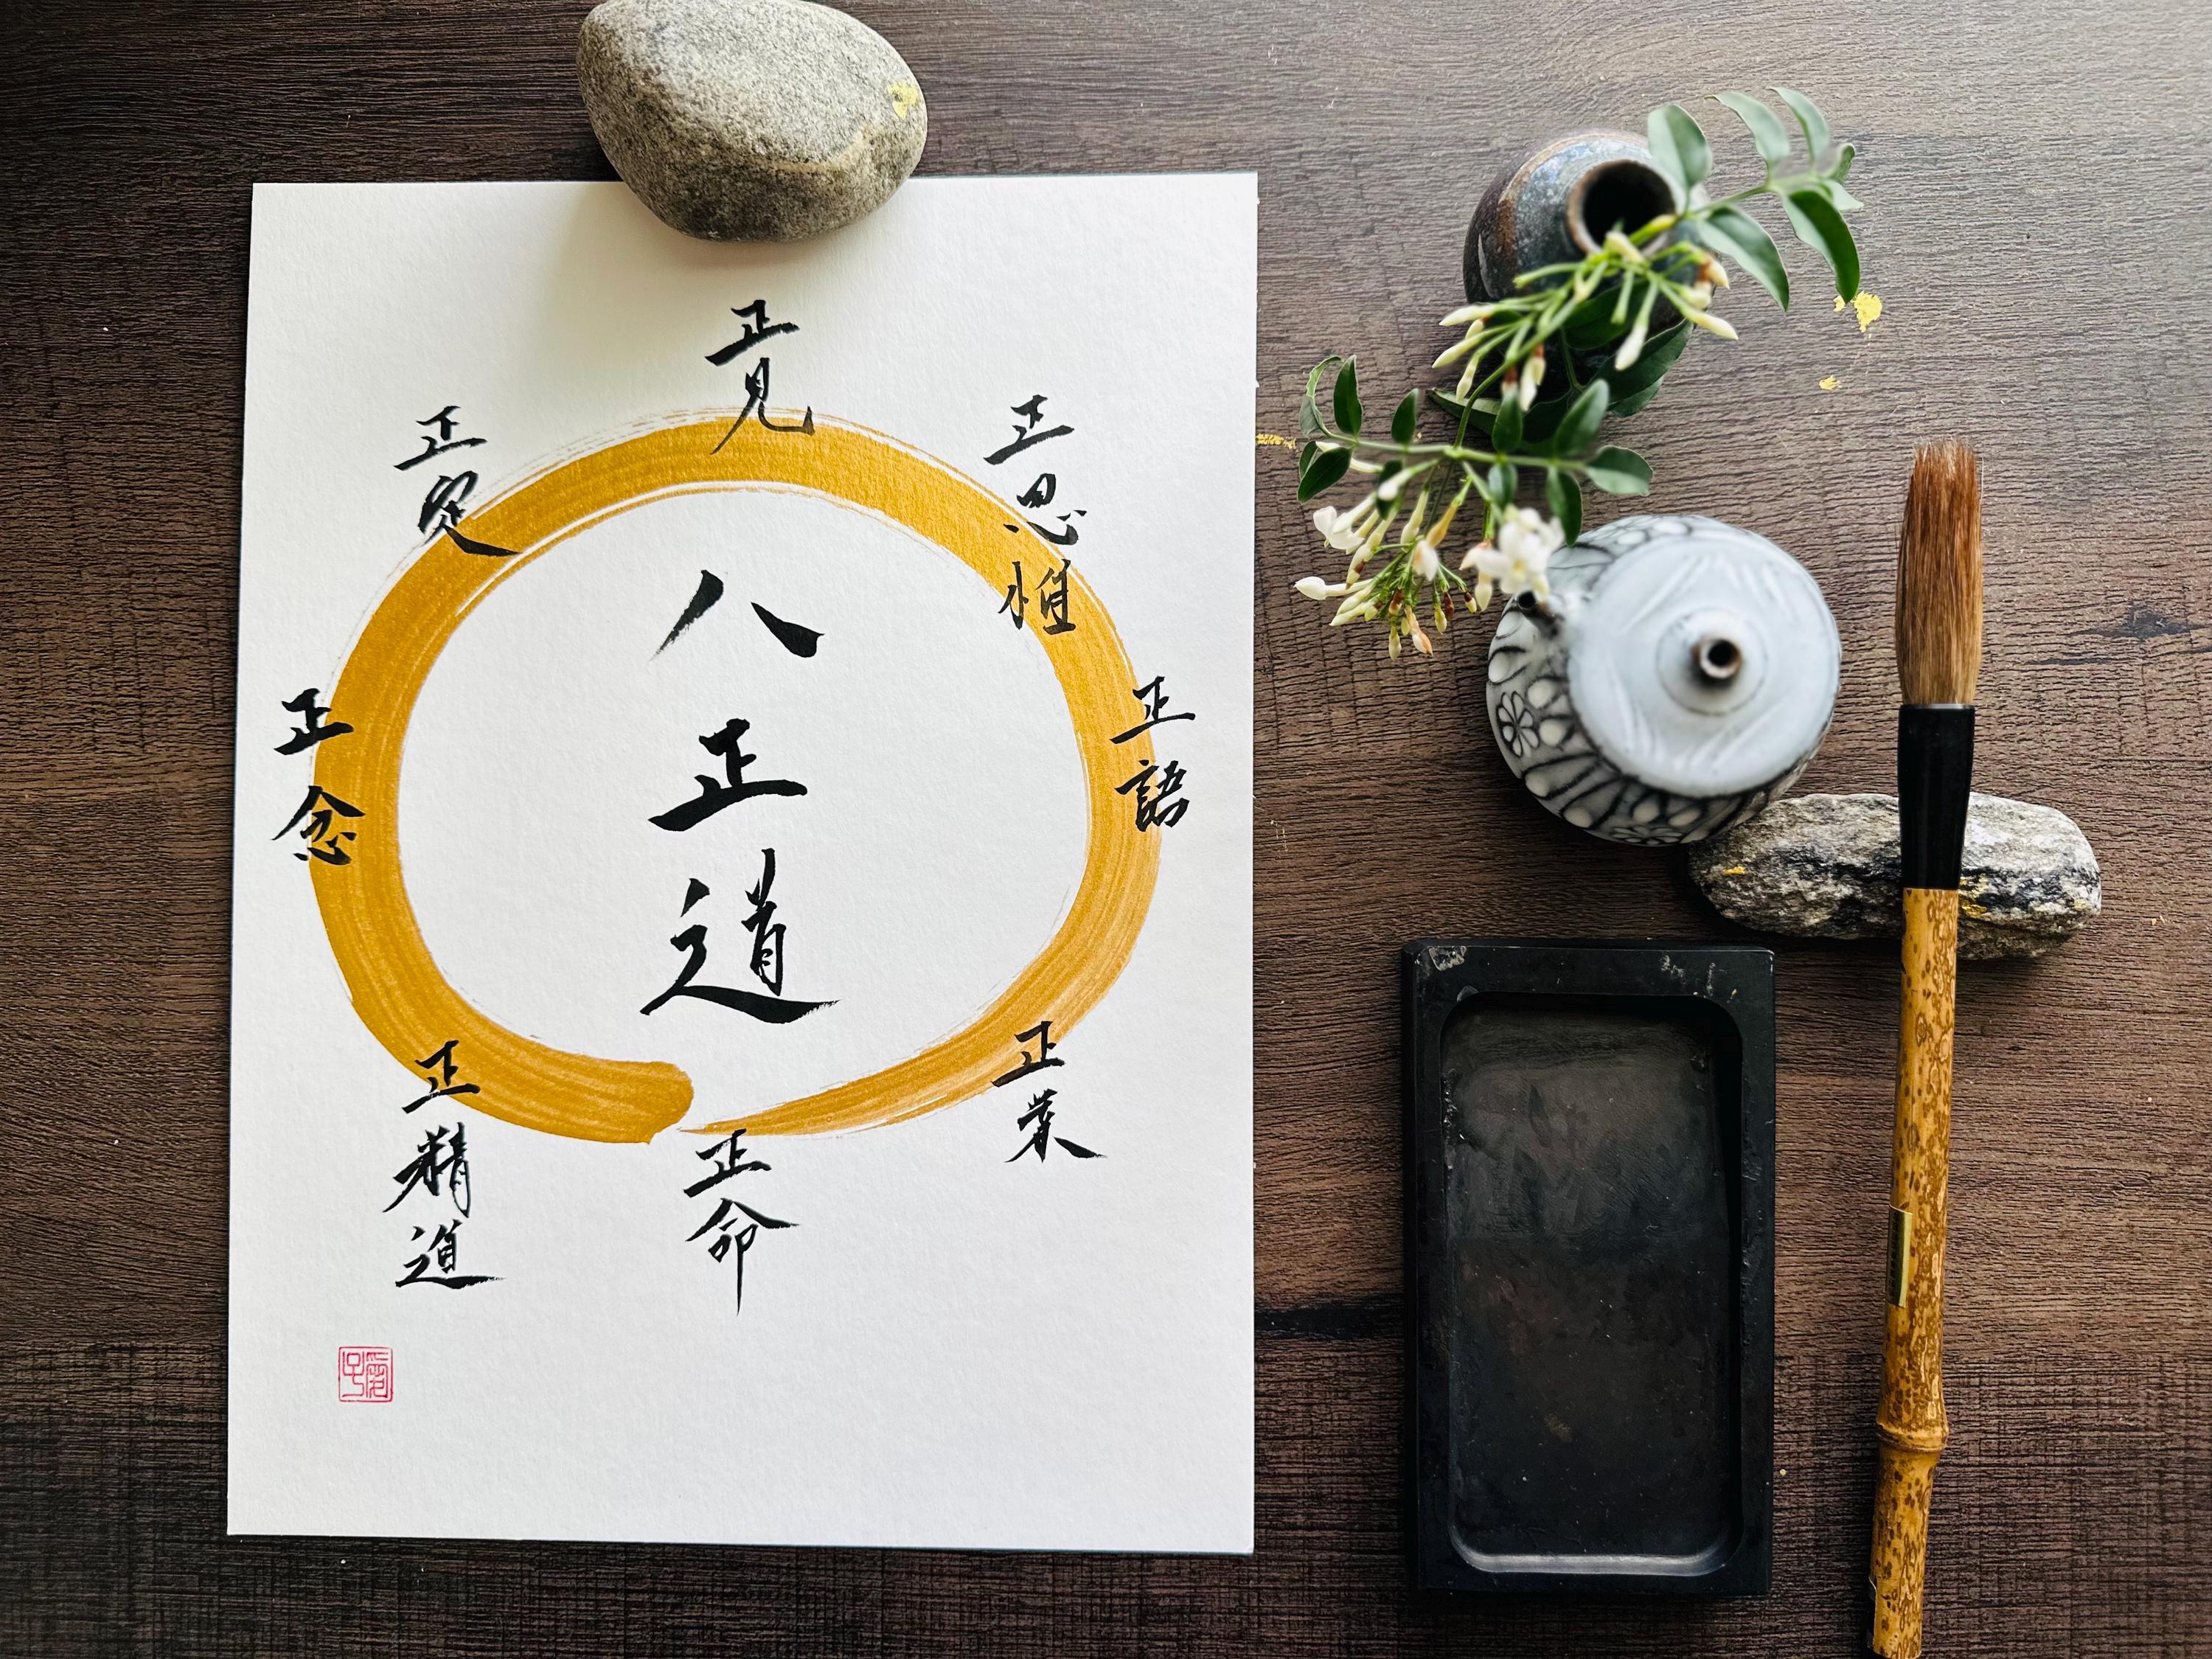 八正道
正見
正思惟
正語
正業
正命
正精進
正念
正定